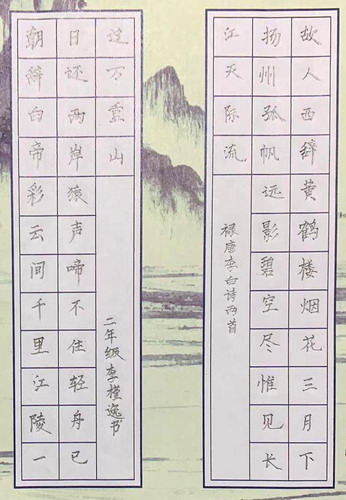 故人西辞黄鹤楼烟花三月下
扬州孤帆远影碧空尽惟见长
江天际流
禄唐李白诗两首
朝辞白帝彩云间千里江陵一
日还两岸猿声啼不住轻舟已
过万重山
二年级李槿逸书